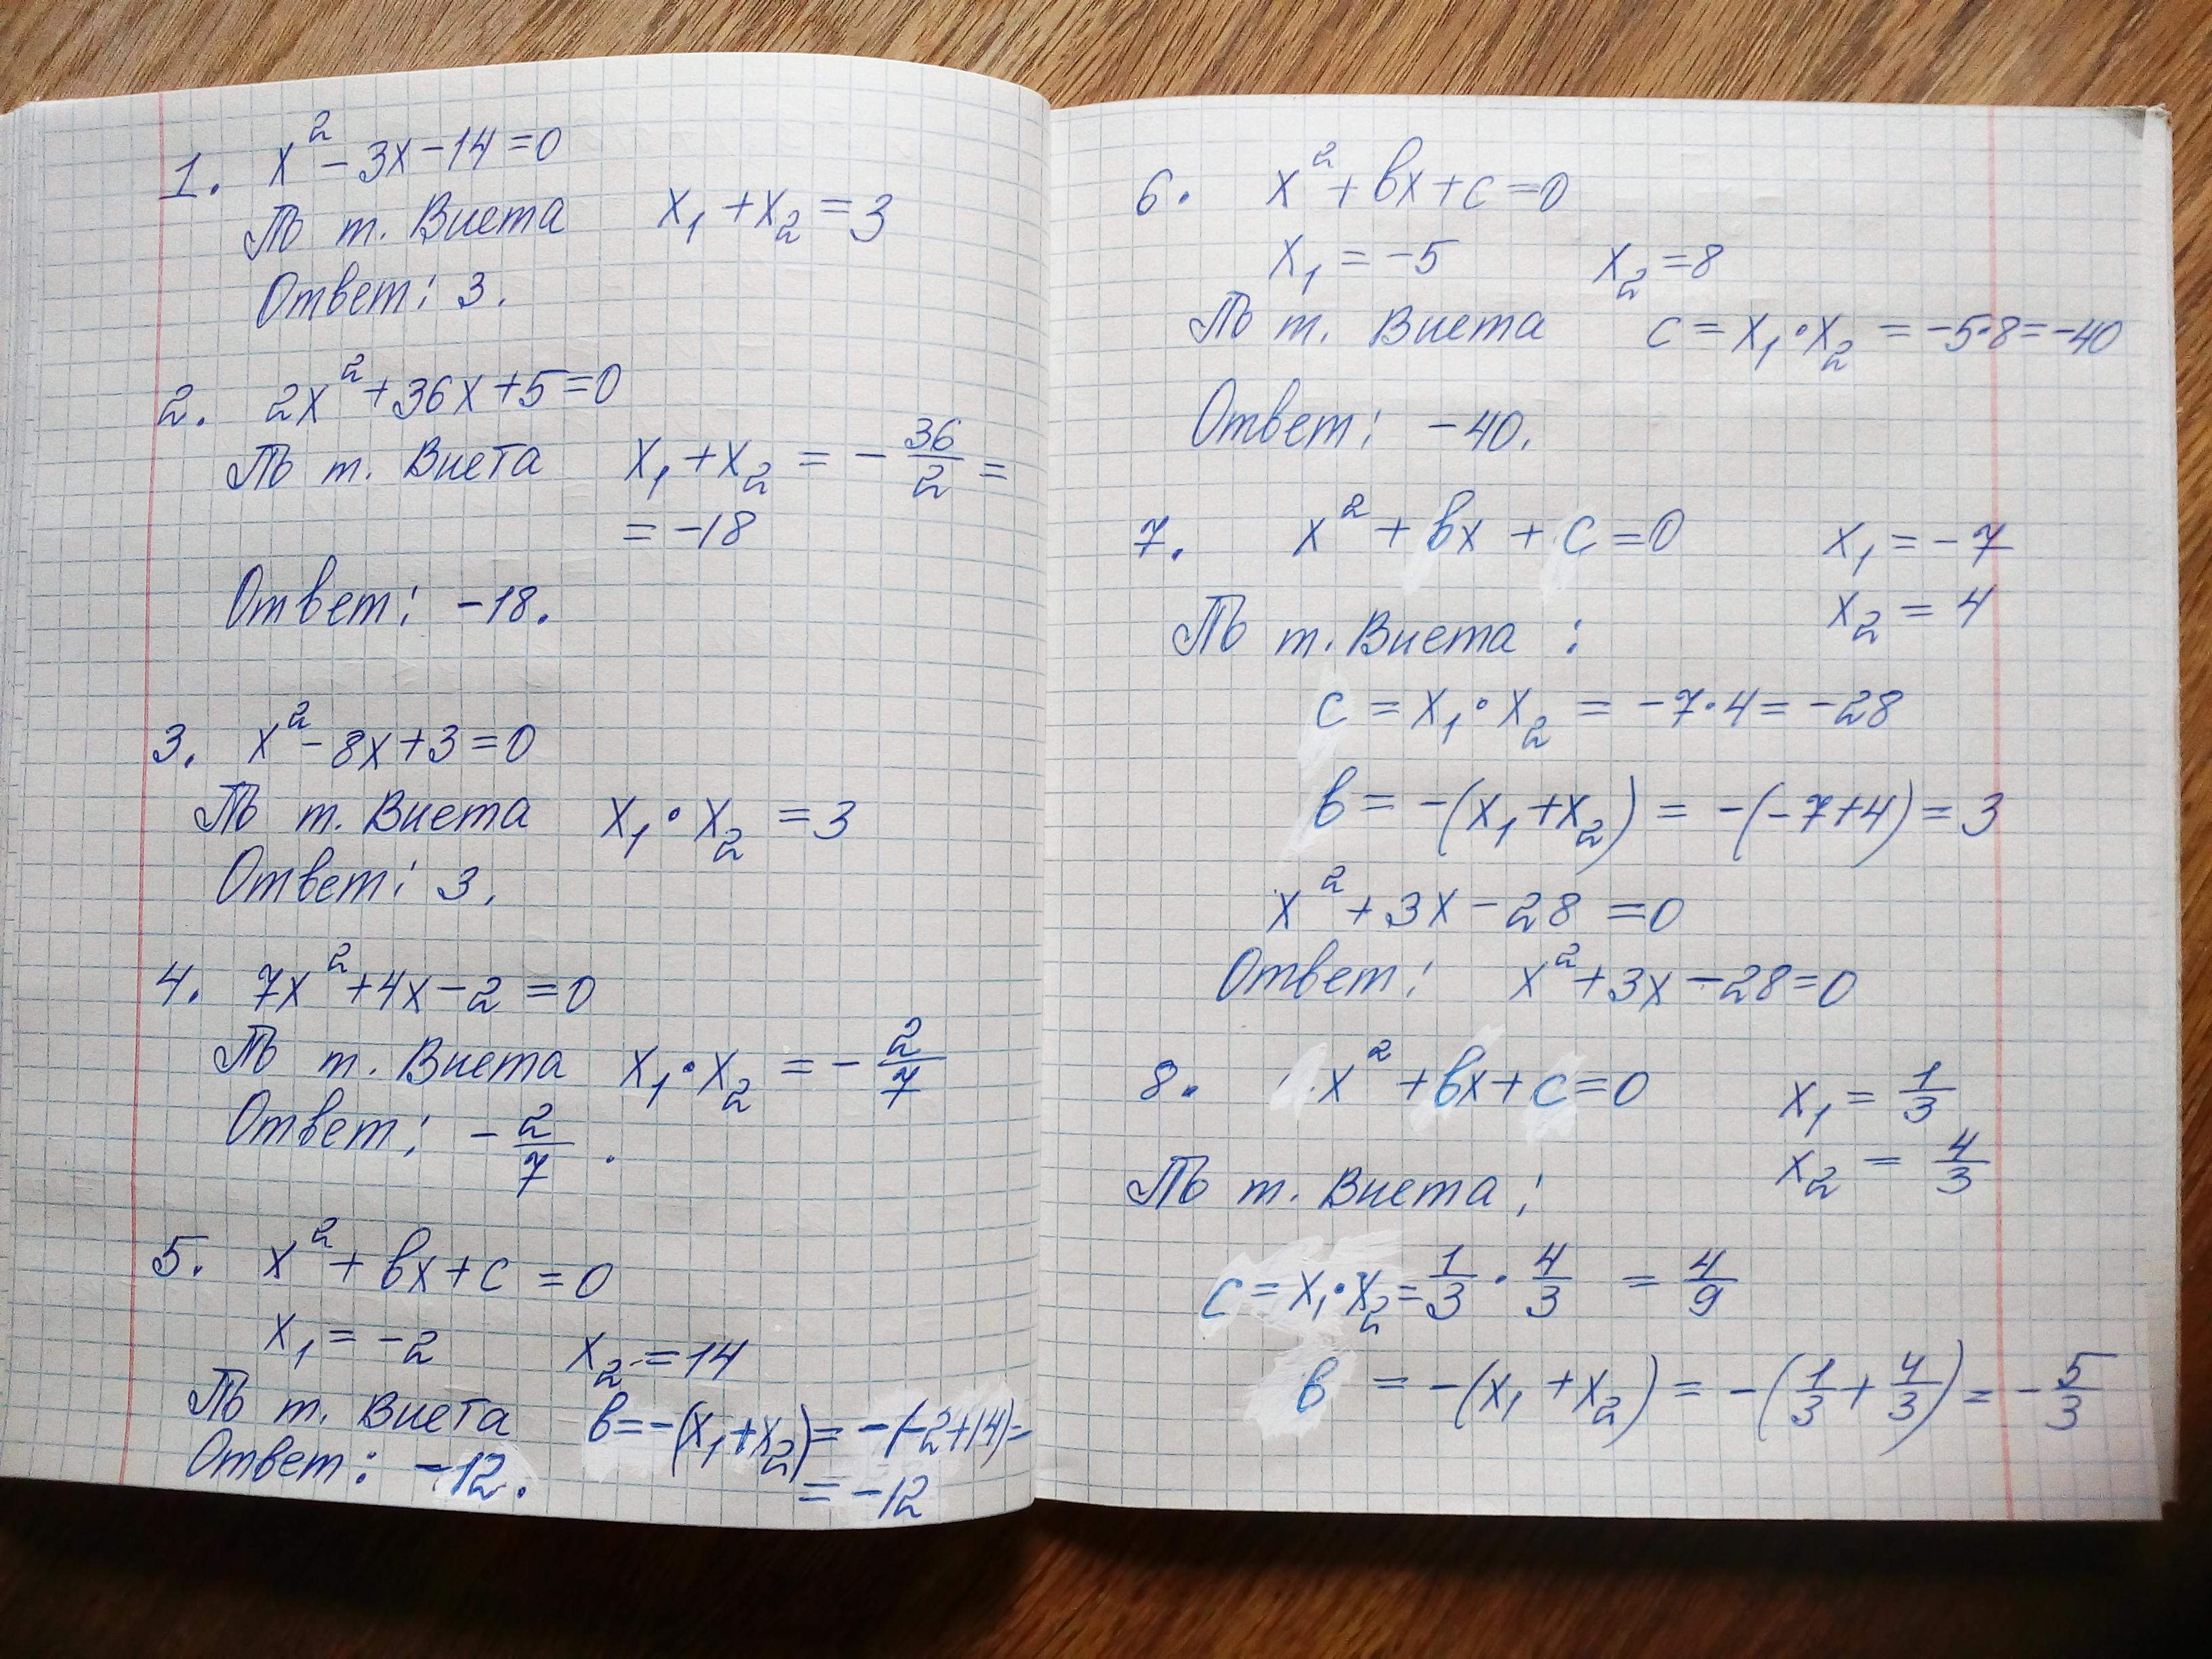 1. x² - 3x - 14 = 0
По т. Виета x₁ + x₂ = 3
Ответ: 3.
2. 2x² + 36x + 5 = 0
По т. Виета x₁ + x₂ = - 36/2 =
= -18
Ответ: -18.
3. x² - 8x + 3 = 0
По т. Виета x₁ · x₂ = 3
Ответ: 3.
4. 7x² + 4x - 2 = 0
По т. Виета x₁ · x₂ = - 2/7
Ответ: - 2/7.
5. x² + bx + c = 0
x₁ = -2 x₂ = 14
По т. Виета b = -(x₁ + x₂) = -(-2 + 14) =
= -12
Ответ: -12.
6. x² + bx + c = 0
x₁ = -5 x₂ = 8
По т. Виета c = x₁ · x₂ = -5 · 8 = -40
Ответ: -40.
7. x² + bx + c = 0 x₁ = -7
x₂ = 4
По т. Виета:
c = x₁ · x₂ = -7 · 4 = -28
b = -(x₁ + x₂) = -(-7 + 4) = 3
x² + 3x - 28 = 0
Ответ: x² + 3x - 28 = 0
8. x² + bx + c = 0 x₁ = 1/3
x₂ = 4/3
По т. Виета:
c = x₁ · x₂ = 1/3 · 4/3 = 4/9
b = -(x₁ + x₂) = -(1/3 + 4/3) = - 5/3